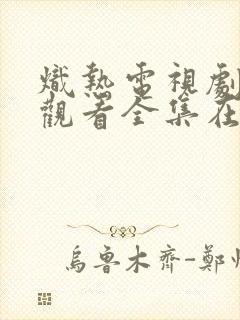 熾熱電視劇
觀看全集在
烏魯木齊-鄭州